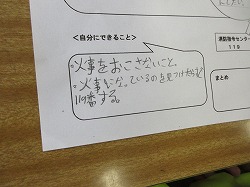 したい。
<自分にできること>
・火事をおこさないこと。
・火事になっているのを見つけたら
119番する。
通信指令センター
119
まとめ